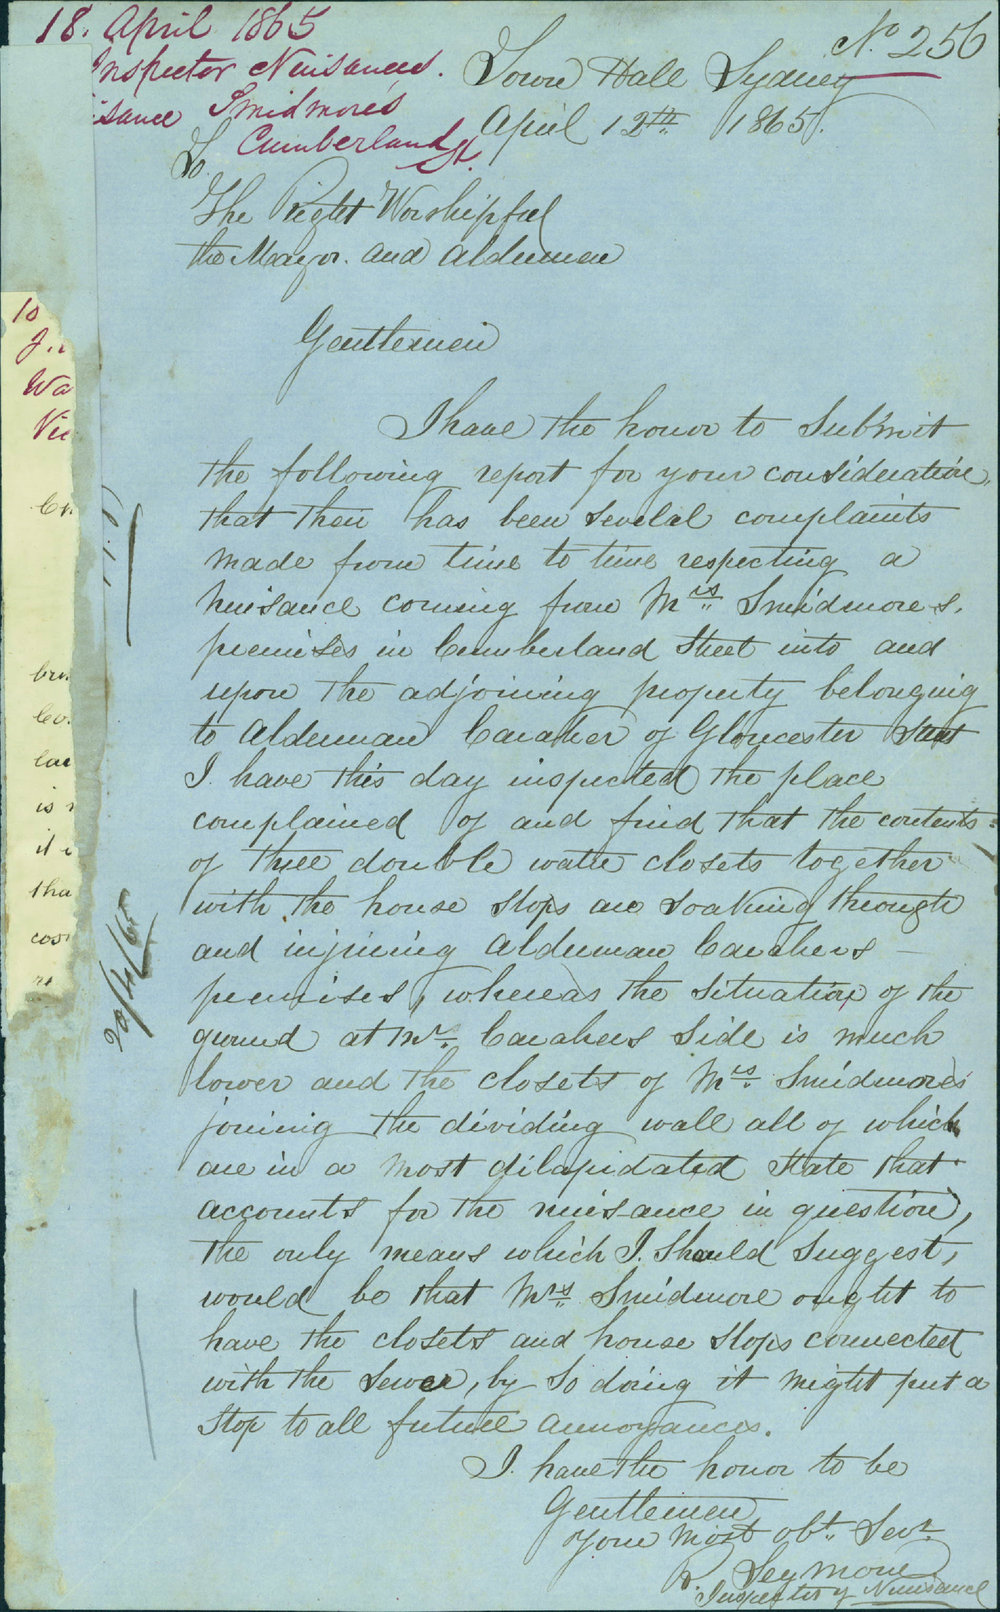 18. April 1865
Inspector Nuisances.
isance Smidmores
Cumberland St.
No. 256
Town Hall Sydney
April 12th 1865.
To.
The Right Worshipful
the Mayor. and Aldermen
Gentlemen
I have the honor to Submit
the following report for your consideration,
that their has been several complaints
made from time to time respecting a
nuisance coming from Mrs Smidmores.
premises in Cumberland Street into and
upon the adjoining property belonging
to Alderman Caraher of Gloucester Street
I have this day inspected the place
complained of and find that the contents
of three double water closets together
with the house slops are soaking through
and injuring Alderman Carahers
premises, whereas the situation of the
ground at Mr. Carahers side is much
lower and the closets of Mrs. Smidmores
joining the dividing wall all of which
are in a most dilapidated state that
accounts for the nuisance in question,
the only means which I. Should Suggest,
would be that Mrs Smidmore ought to
have the closets and house slops connected
with the sewer, by So doing it might put a
Stop to all future annoyances.
I. have the honor to be
Gentlemen
Your Most obt. Servt.
R. Seymour
Inspector of Nuisance
20/4/65
10
J.
Wa
is
it
tha
cos